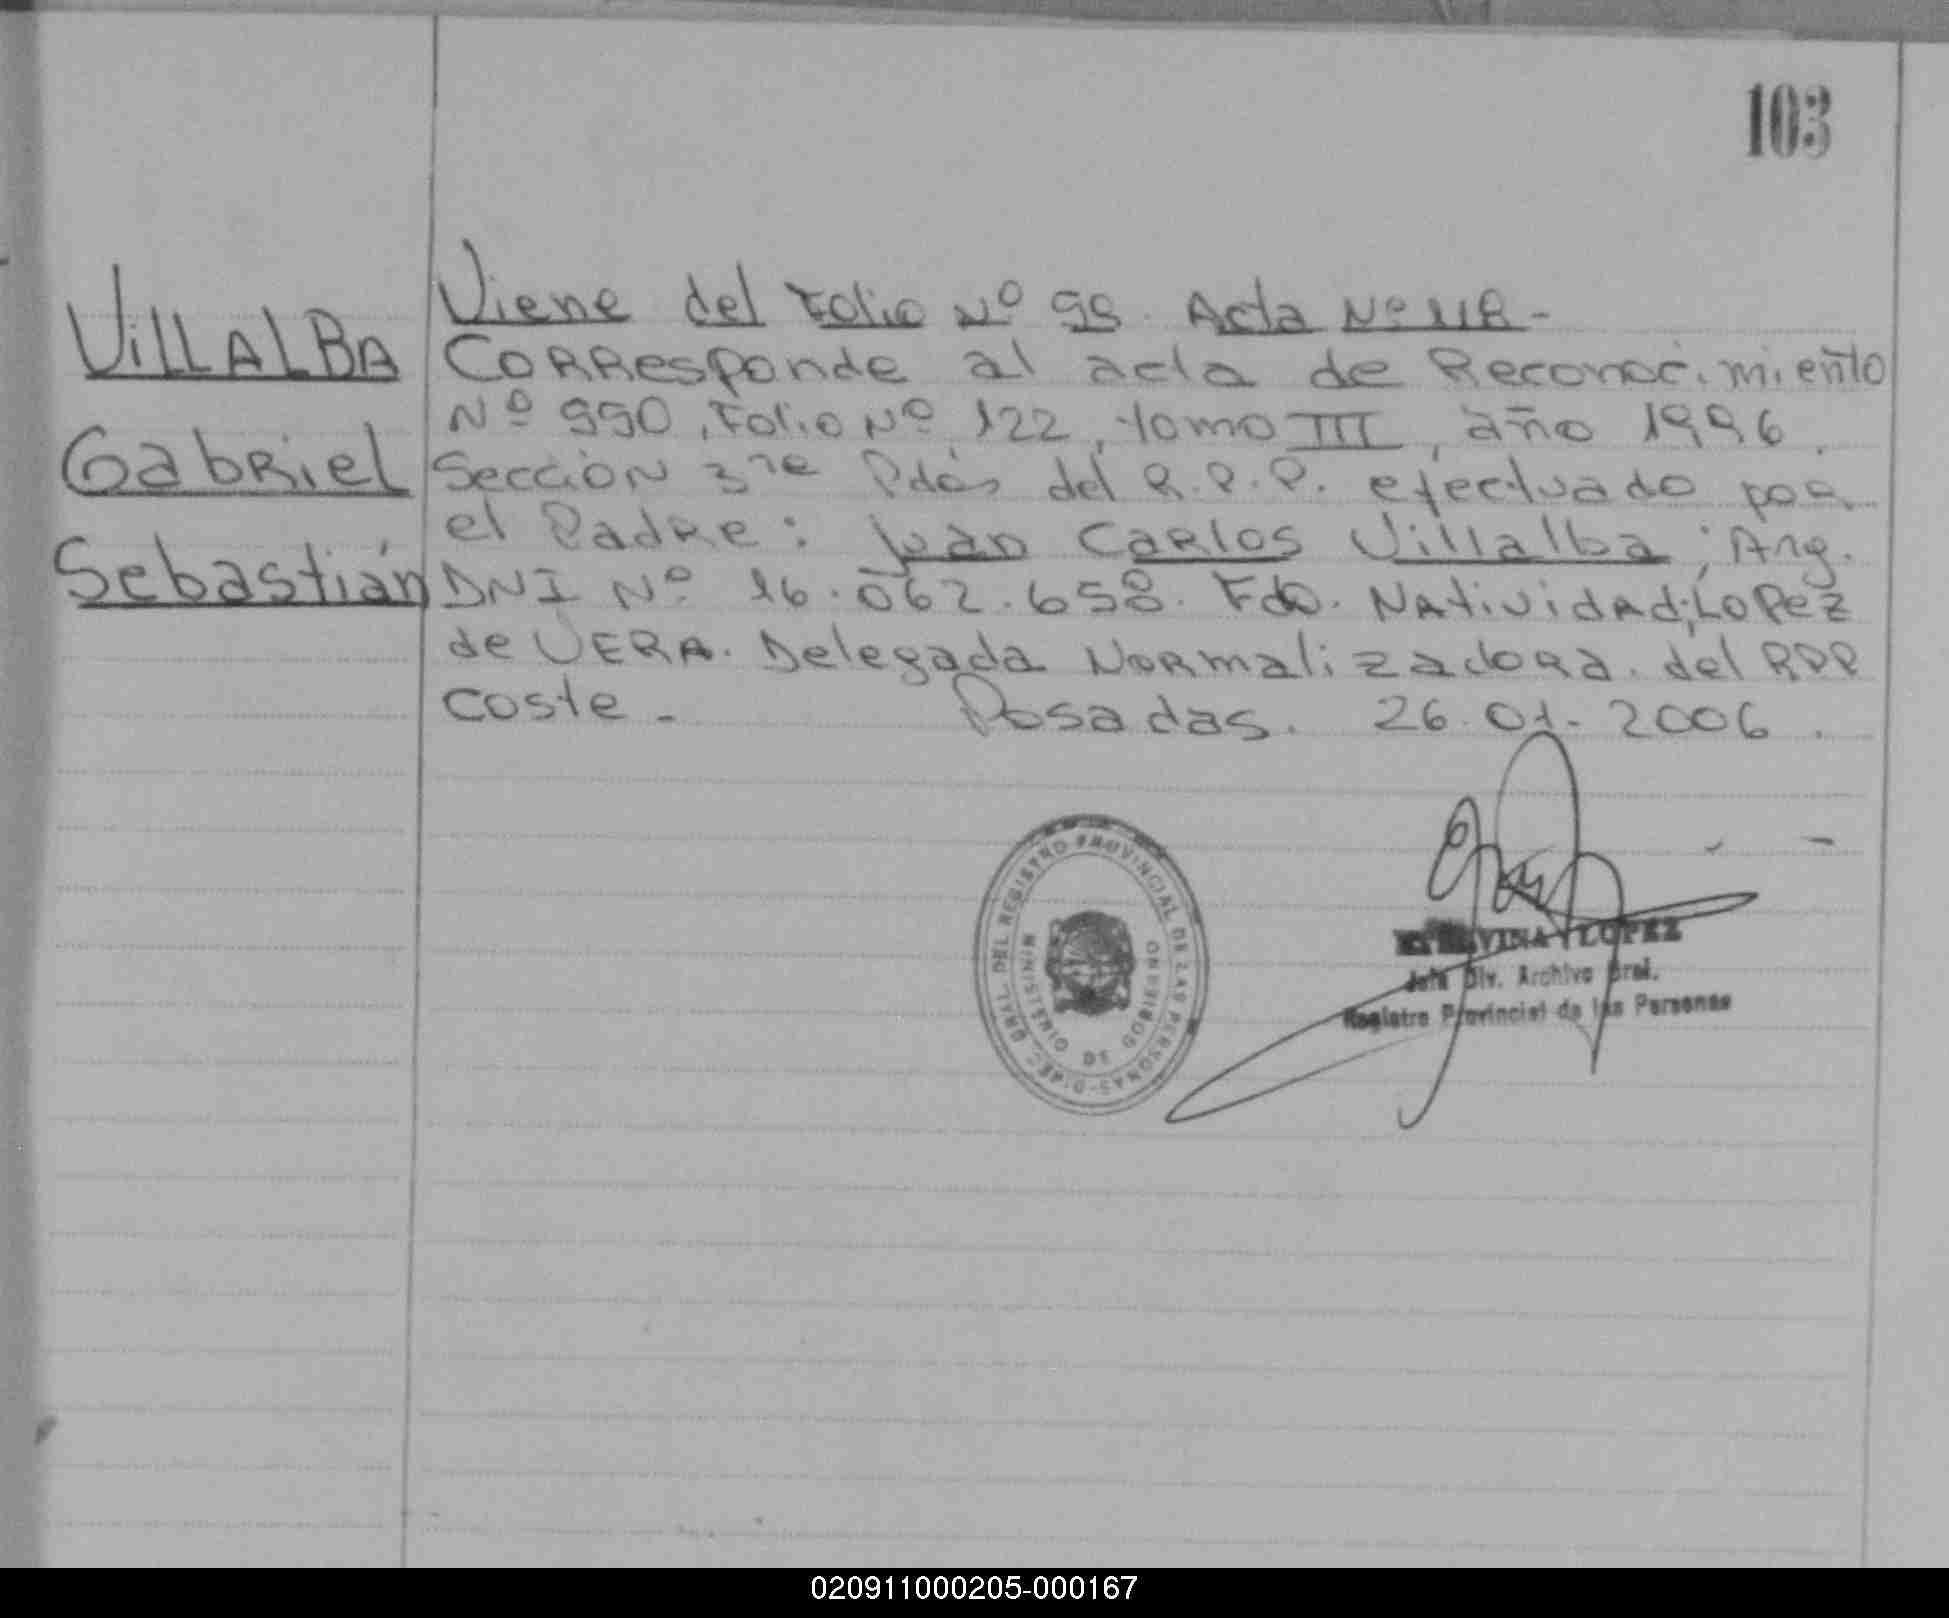 103
Viene del Folio Nº 99. Acta Nº
VILLALBA
Corresponde al acta de Reconocimiento
Nº 990, Folio Nº 122, tomo III, año 1996.
Gabriel
Sección 3ra Pdas del R.P.P. efectuado por
el Padre: Juan Carlos Villalba; Arg.
Sebastián
DNI Nº 16.062.658. Fdo. Natividad López
de VERA. Delegada Normalizadora. del RPP
Coste. Posadas. 26.01-2006.
DIREC. GRAL. DEL REGISTRO PROVINCIAL DE LAS PERSONAS
MINISTERIO DE GOBIERNO
LOPEZ
Jefa Div. Archivo Gral.
Registro Provincial de las Personas
020911000205-000167